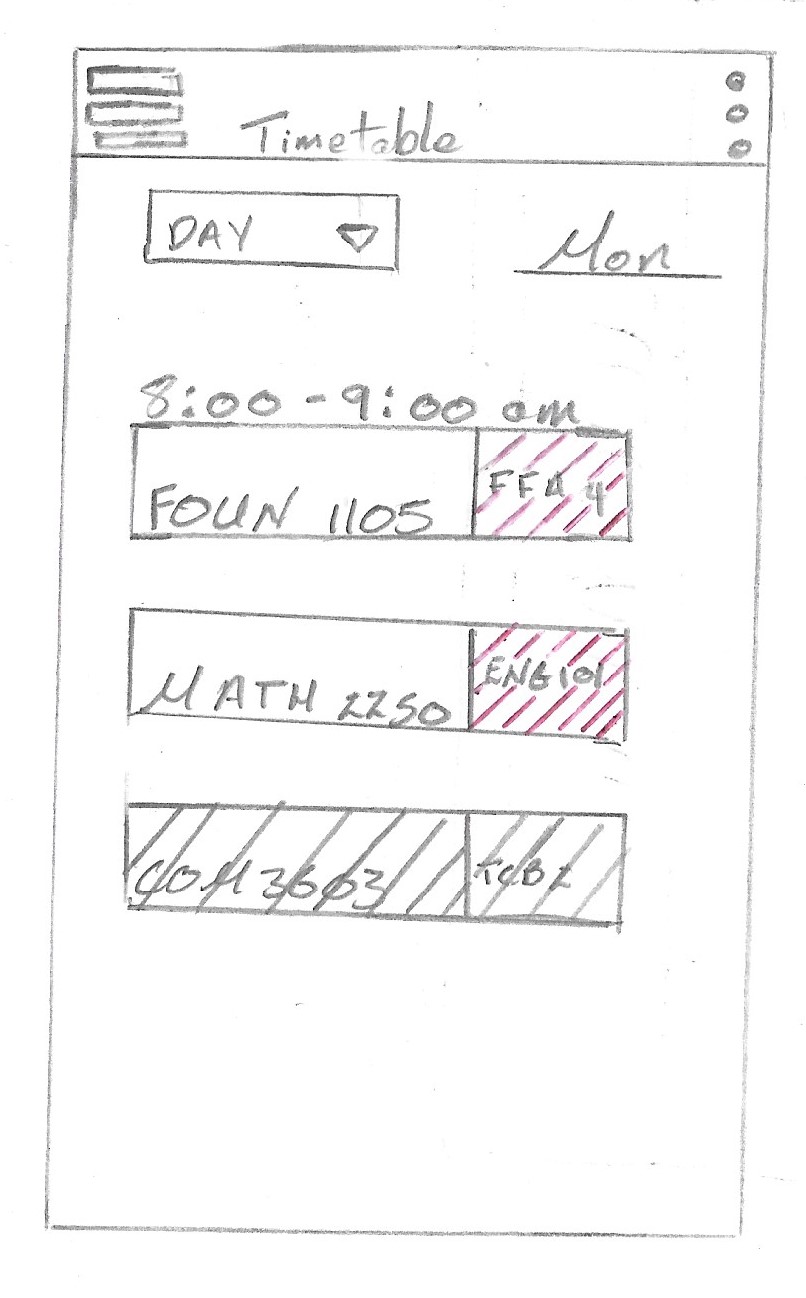 Timetable
DAY
Mon
8:00 - 9:00 am
FOUN 1105
FFA 4
MATH 2250
ENG 101
COM 3603
TCB 2